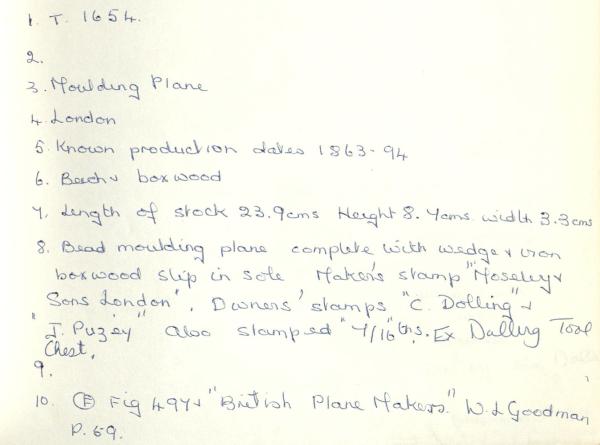 1. T. 1654.
2.
3. Moulding Plane
4. London
5. Known production dates 1863-94
6. Beech + boxwood
7. Length of stock 23.9cms Height 8.7cms width 3.3cms
8. Bead moulding plane complete with wedge + iron
boxwood slip in sole Maker's stamp "Moseley +
Sons London". Owners' stamps "C. Dolling" +
"J. Puzey" Also stamped "7/16"ths. Ex Dalling Tool
Chest.
9.
10. (E) Fig 497 + "British Plane Makers" W.L Goodman
P. 69.